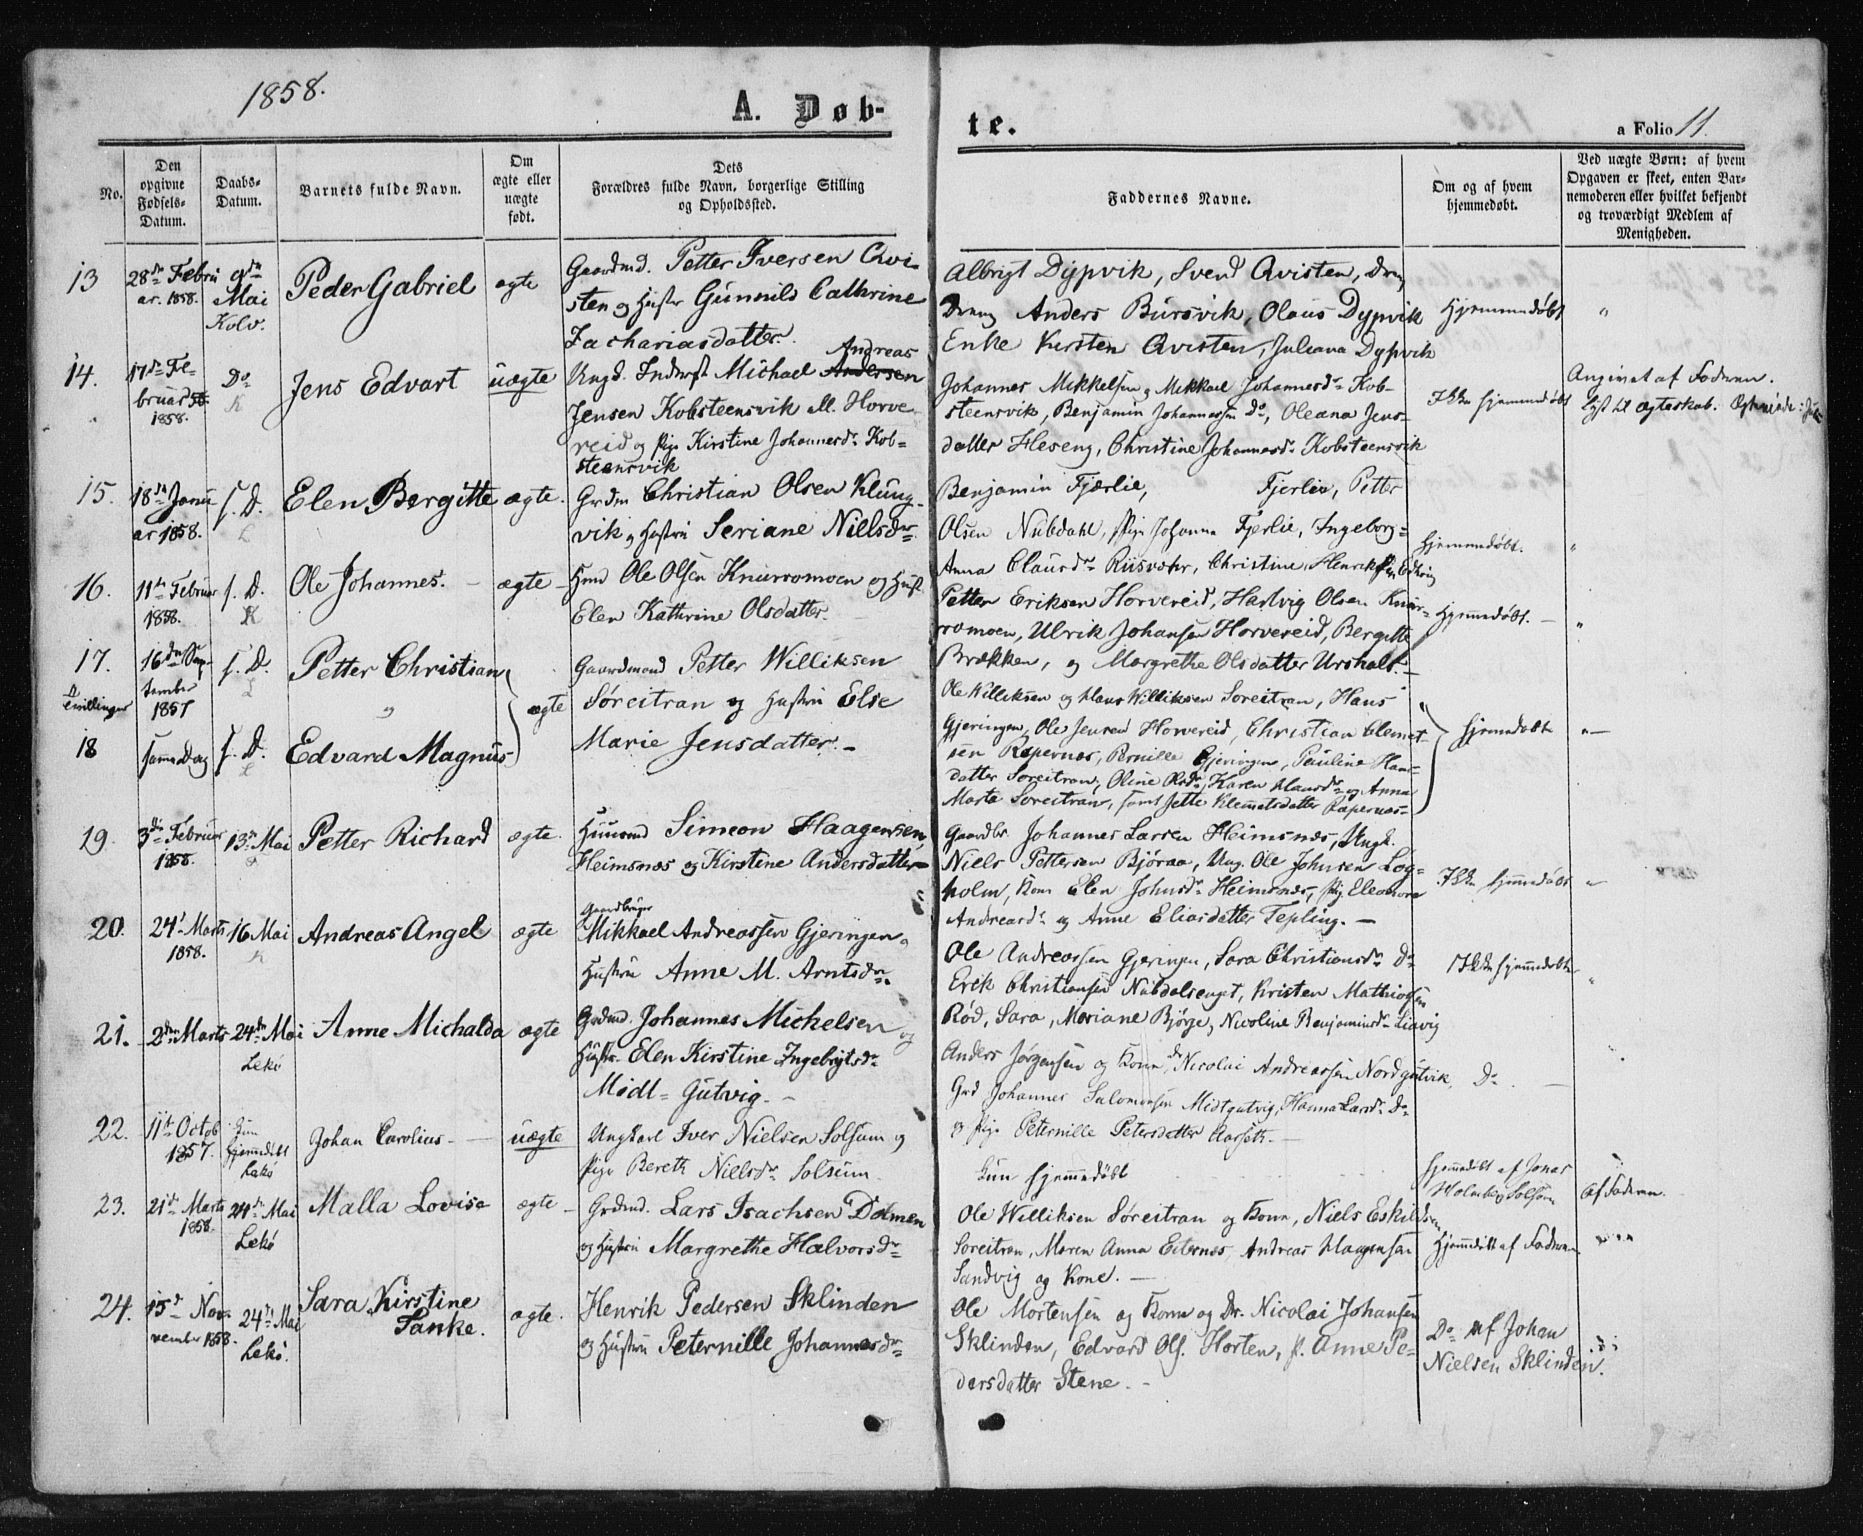 1858.
A. Døb-
te.
a Folio 11.
No.
Den opgivne Fødsels-Datum.
Daabs-Datum.
Barnets fulde Navn.
Om ægte eller uægte født.
Dets Forældres fulde Navn, borgerlige Stilling og Opholdssted.
Faddernes Navne.
Om og af hvem hjemmedøbt.
Ved uægte Børn: af hvem Opgaven er skeet, enten Barnemoderen eller hvilket bekjendt og troværdigt Medlem af Menigheden.
13 28de Febru 9de Peder Gabriel ægte Gaardmd. Petter Iversen Qvi-
ar. 1858. Mai sten og Hustr Gunnild Cathrine
Kolv. Zachariasdatter.
Albrigt Dypvik, Svend Qvisten,
Dreng Anders Bursvik, Olaus Dypvik Hjemmedøbt "
Enke Kirsten Qvisten, Juliana Dypvik
14. 17de Fe- Do Jens Edvart uægte Ungd. Inderst Michael Andersen Andreas
bruar K Jensen Kobsteensvik Horve-
1858. reid og Pige Kirstine Johannesdr Kob-
steensvik
Johannes Mikkelsen, Mikkael Johannesdr Kob-
steensvik, Benjamin Johannessen Do, Oleana Jens-
datter Heseng, Christine Johannesdr Kobsteensvik
Ikke hjemmedøbt
Angivet af Faderen.
Lyst til Ægteskab.
15. 18de Janu- s. D. Elen Bergitte ægte. Grdm Christian Olsen Klung-
ar 1858. L vik og Hustru Seriane Nielsdr
Benjamin Fjærlie, Fjerlie, Petter
Olsen Nubdahl, Pige Johanna Fjerlie, Ingeborg
Anna Clausdr Riisvær, Christine Henrik
Hjemmedøbt. "
16. 11te Februar s. D. Ole Johannes. ægte Hmd Ole Olsen Knurromoen og Hust.
1858. K Elen Kathrine Olsdatter.
Petter Eriksen Horvereid, Hartvig Olsen Knur-
romoen, Ulrik Johansen Horvereid, Bergitte
Brækken, og Margrethe Olsdatter Urshals.
Hjemmedøbt. "
17. 16de Sep- s. D. Petter Christian Gaardmand Petter Williksen
Tvillinger tember L og ægte Søreitran og Hustru Else
1857 Marie Jensdatter.
18 samme Dag s. D. Edvard Magnus
L
Ole Williksen og Hans Williksen Søreitran, Hans
Gjeringen, Ole Jensen Horvereid, Christian Clemet-
sen Rapernæs, Pernille Gjeringen, Pauline Hans-
datter Søreitran, Oline Olsdr, Karen Hansdr og Anna
Marta Søreitran, samt Jette Klemetsdatter Rapernæs
Hjemmedøbte "
19. 3die Februar 13de Mai Petter Richard ægte. Huusmd Simeon Haagensen,
1858. Heimsnæs og Kirstine Andersdatter
Gaardbr. Johannes Larsen Heimsnæs, Ungk.
Niels Pettersen Bjøraa, Ung. Ole Johnsen Log-
holm, Kone Elen Johnsdr Heimsnæs, Pig Eleonora
Andreasdr og Anne Eliasdatter Tepling.
Ikke hjemmedøbt "
20. 24de Marts 16 Mai Andreas Angel ægte Gaardbruger
1858. K Mikkael Andreassen Gjeringen og
Hustru Anne M. Arntsdr.
Ole Andreassen Gjeringen, Sara Christiansdr Do
Erik Christiansen Nubdalsenget, Kristen Mathiassen
Rød, Sara, Mariane Bjørge, Nicoline Benjaminsdr Liavig
Ikke hjemmedøbte "
21. 2den Marts 24de Mai Anne Michalda ægte Grdmd. Johannes Mickelsen og
Lekø Hustr. Elen Kirstine Ingebrigtsdr
Midt-Gutvig.
Anders Jørgensen og Kone, dr Nicolai Andreassen Nordgutvik,
Grd Johannes Salomonsen Midtgutvig, Hanna Larsdr Do
og Pige Peternille Petersdatter Aarseth.
Do
22. 11te Octob Kun Johan Carolius uægte Ungkarl Iver Nielsen Solsum og
1857. hjemmedøbt Pige Bereth Nielsdr Solsum
Lekø
Kun hjemmedøbt
Hjemmedøbt af Jonas
Holmberg Solsum
Af Faderen.
23. 21de Marts 24de Mai Malla Lovise ægte Grdmd. Lars Isachsen Dolmen
1858. Lekø og Hustru Margrethe Halvorsdr
Ole Williksen Søreitran og Kone, Niels Eskildsen
Søreitran, Maren Anna Eiternes, Andreas Haagensen
Sandvig og Kone.
Hjemmedøbt af Faderen
24. 15de No- 24de Mai Sara Kirstine ægte. Henrik Pedersen Sklinden
vember 1858. Lekø. Tanke. og Hustru Peternille Johannesdr
Ole Mortensen og Kone og Dr. Nicolai Johansen
Sklinden, Edvard Ols. Horten, P. Anne Pe-
dersdatter Stene.
Do af Johan
Nielsen Sklinden.